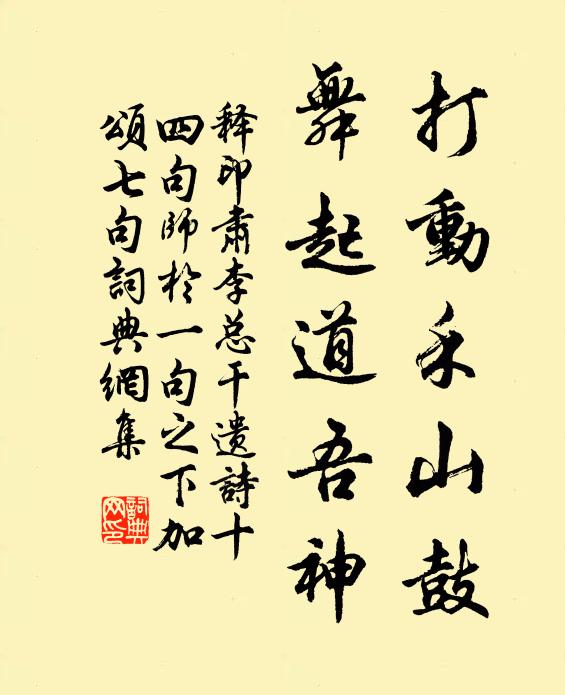 打動禾山鼓
舞起道吾神
释印肅李总干遗詩十
四句師於一句之下加
頌七句詞典網集
詞典網印